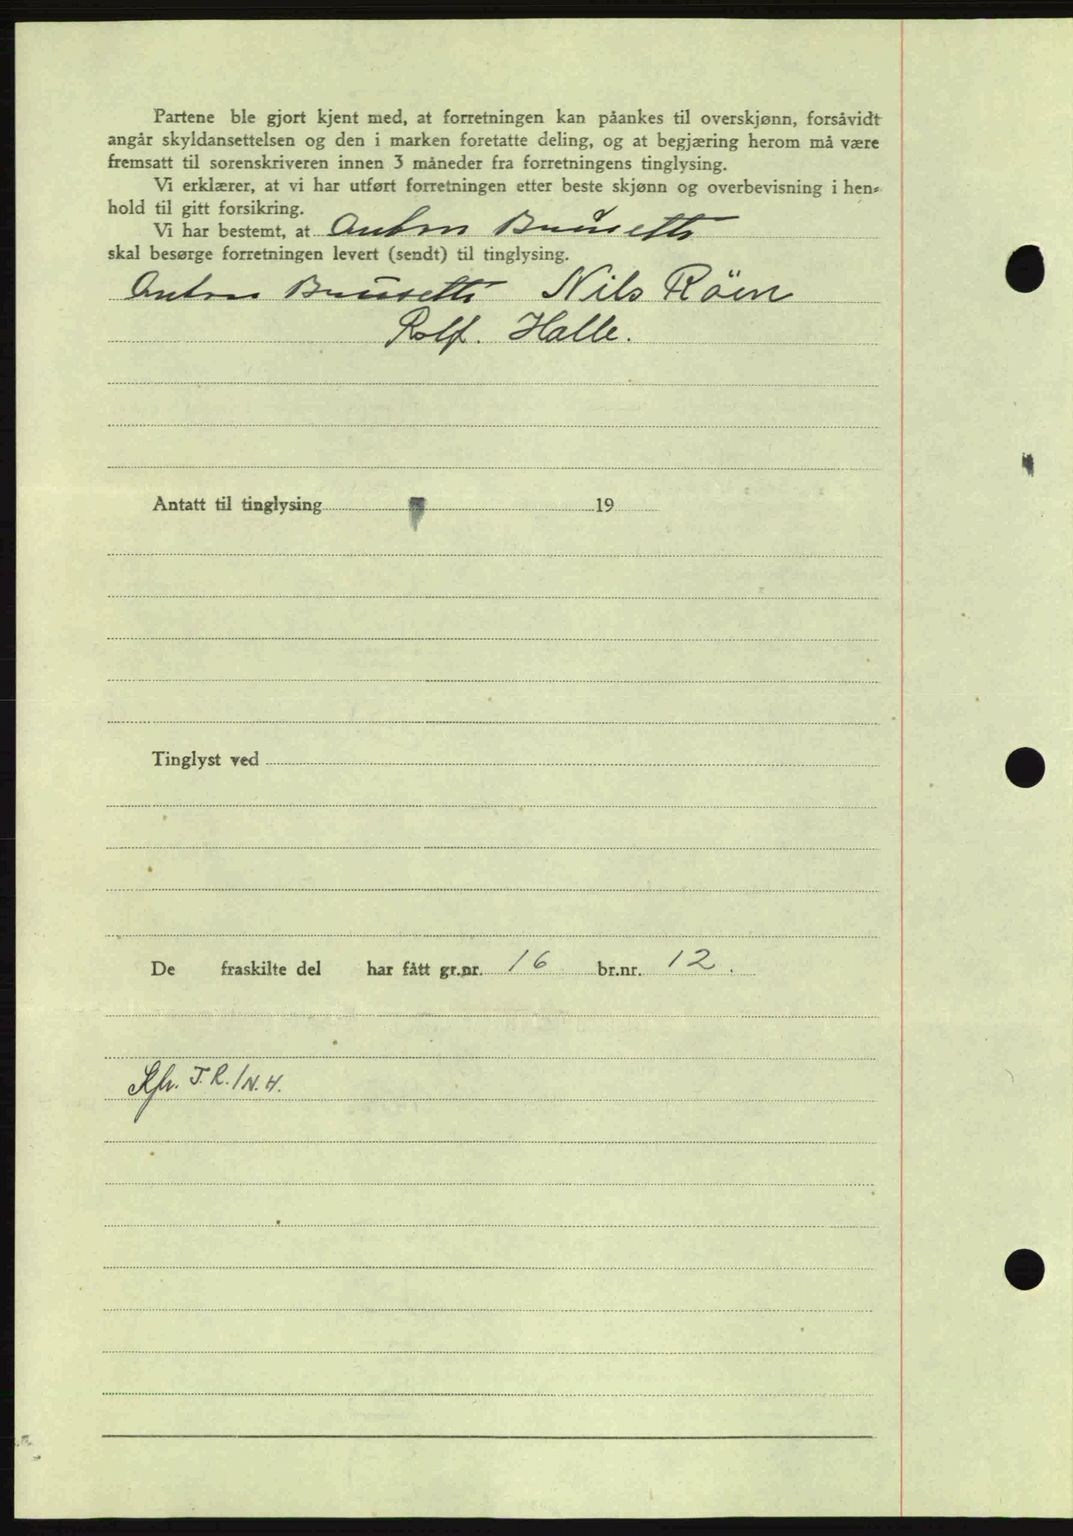 Partene ble gjort kjent med, at forretningen kan påankes til overskjønn, forsåvidt
angår skyldansettelsen og den i marken foretatte deling, og at begjæring herom må være
fremsatt til sorenskriveren innen 3 måneder fra forretningens tinglysing.
Vi erklærer, at vi har utført forretningen etter beste skjønn og overbevisning i hen-
hold til gitt forsikring.
Vi har bestemt, at Anton Brusetti
skal besørge forretningen levert (sendt) til tinglysing.
Anton Brusetti Nils Röen
Rolf. Halle.
Antatt til tinglysing 19
Tinglyst ved
De fraskilte del har fått gr.nr. 16 br.nr. 12.
Kfr. T.R./N.H.